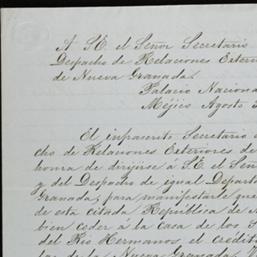 A S.E. el Señor Secretario
Despacho de Relaciones Exterior
de Nueva Granada.
Palacio Naciona
Méjico Agosto
El infrascrito Secretario
cho de Relaciones Exteriores de
honra de dirijirse á S.E. el Señ
y del Despacho de igual Depart
Granada, para manifestarle que
de esta citada República de
bien ceder á la casa de los
del Rio Hermanos, el crédit
de la Nueva Granada